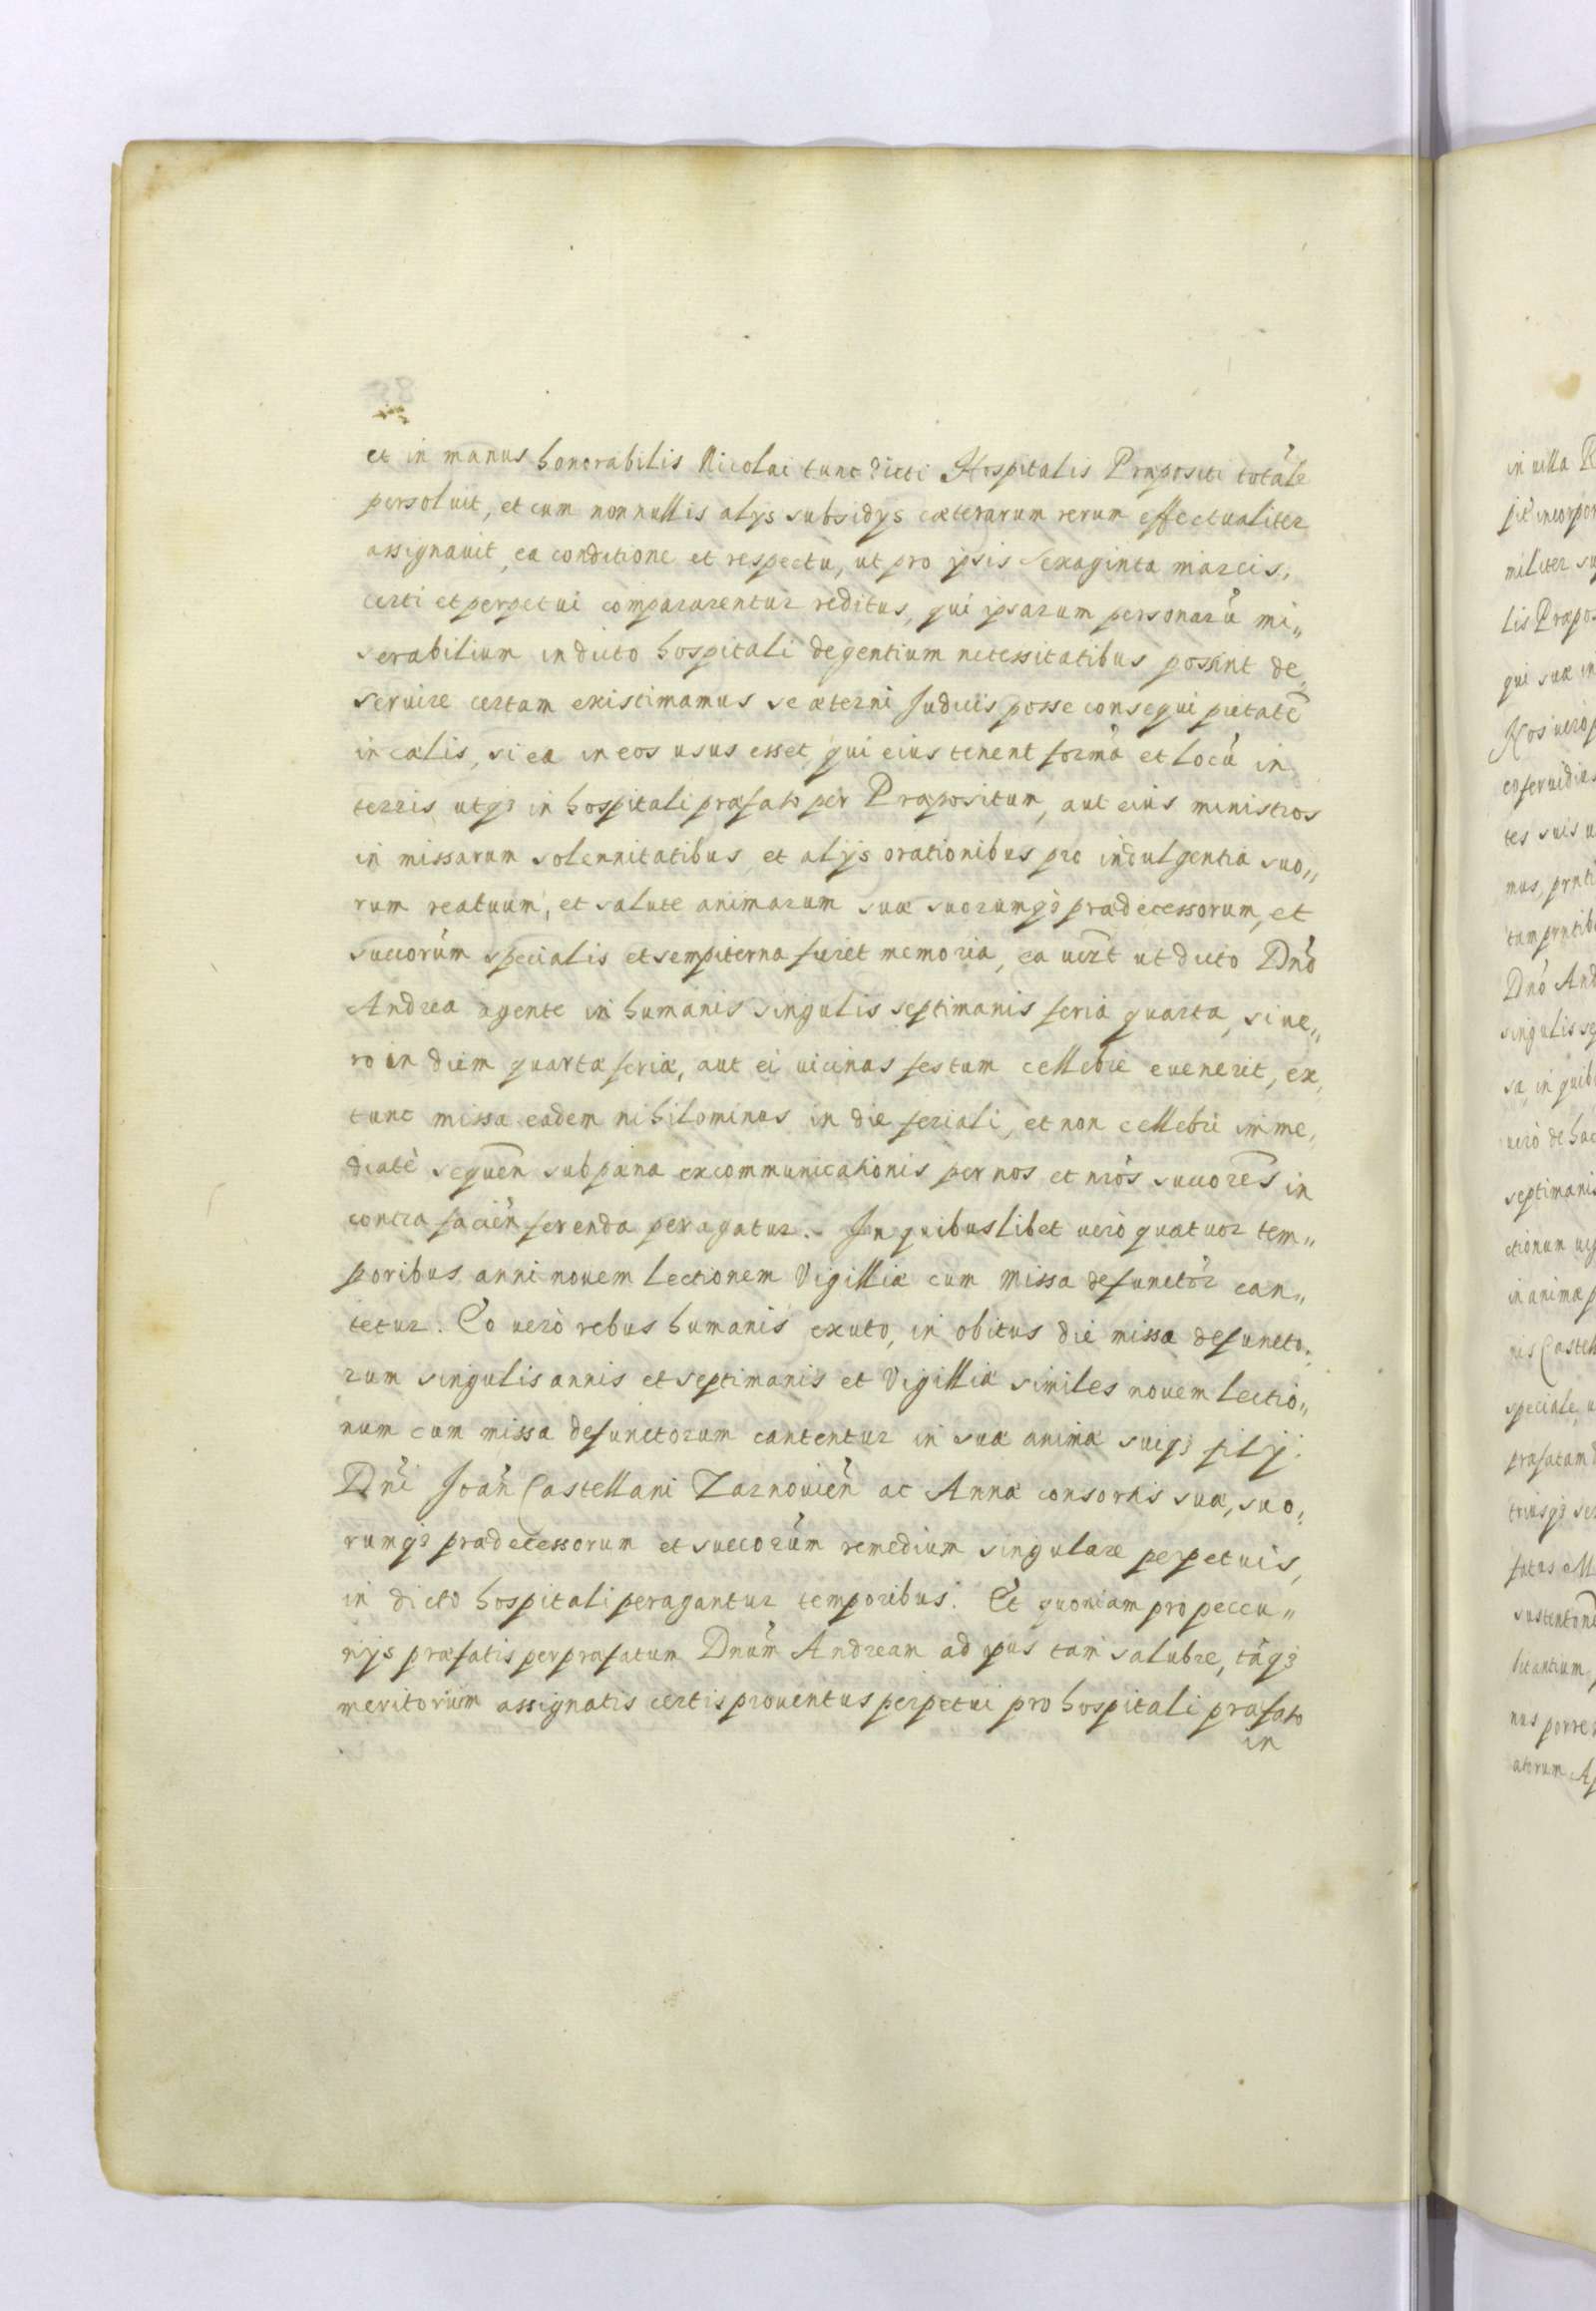 et in manus honorabilis Nicolai tunc dicti Hospitalis Præpositi totale
persoluit, et cum nonnullis alys subsidys cæterarum rerum effectualiter
assignauit, ea conditione et respectu, ut pro ipsis sexaginta marcis,
certi et perpetui compararentur reditus, qui ipsarum personarũ mi„
serabilium in dicto hospitali degentium necessitatibus possint de„
seruire certam existimamus se æterni Judicis posse consequi pietatẽ
in cælis, si ea in eos usus esset, qui eius tenent formã et locũ in
terris utq3 in hospitali præfato per Præpositum, aut eius ministros
in missarum solennitatibus, et alijs orationibus pro indulgentia suo„
rum reatuum, et salute animarum suæ suorumq3 prædecessorum, et
succorũm specialis et sempiterna fieret memoria, ea uczt ut dicto Dnõ
Andrea agente in humanis singulis septimanis feria quarta, si ue„
ro in diem quartæ feriæ, aut ei uicinas festum cellebre euenerit, ex„
tunc missa eadem nihilominus in die feriali, et non cellebri imme„
diatè sequẽn sub pæna excommunicationis per nos et nrõs succorẽs in
contra faciẽn ferenda peragatur. In quibuslibet uerò quatuor tem„
poribus anni nouem lectionem Vigilliæ cum missa defunctõr can„
tetur. Eo uerò rebus humanis exuto, in obitus die missa defuncto„
rum singulis annis et septimanis et Vigilliæ similes nouem lectio„
num cum missa defunctorum cantentur in suæ animæ suiq3 filij.
Dnĩ Joãn Castellani Zarnouiẽn ac Annæ consortis suæ, suo„
rumq3 prædecessorum et succorũm remedium singulare perpetuis,
in dicto hospitali peragantur temporibus. Et quoniam pro peccu„
nijs præfatis per præfatum Dnũm Andream ad pus tam salubre, tãq3
meritorium assignatis certis prouentus perpetui pro hospitali præfato
in